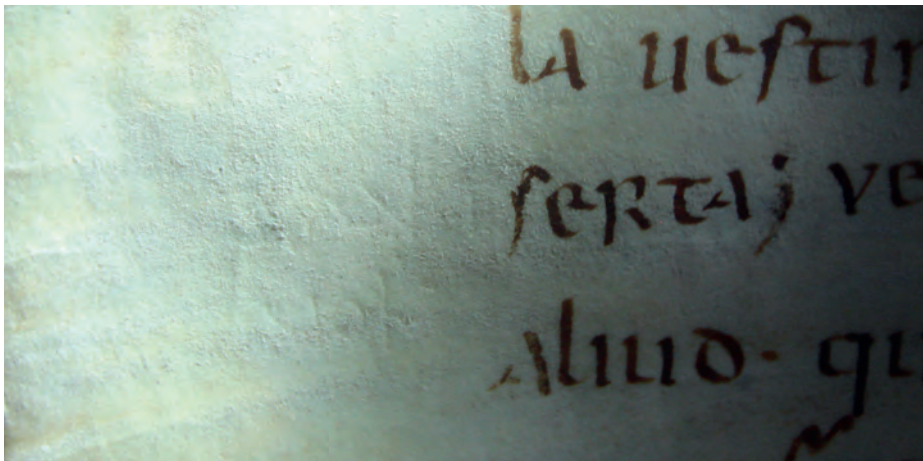 la uesti
sertaj ve
Aliud · qu